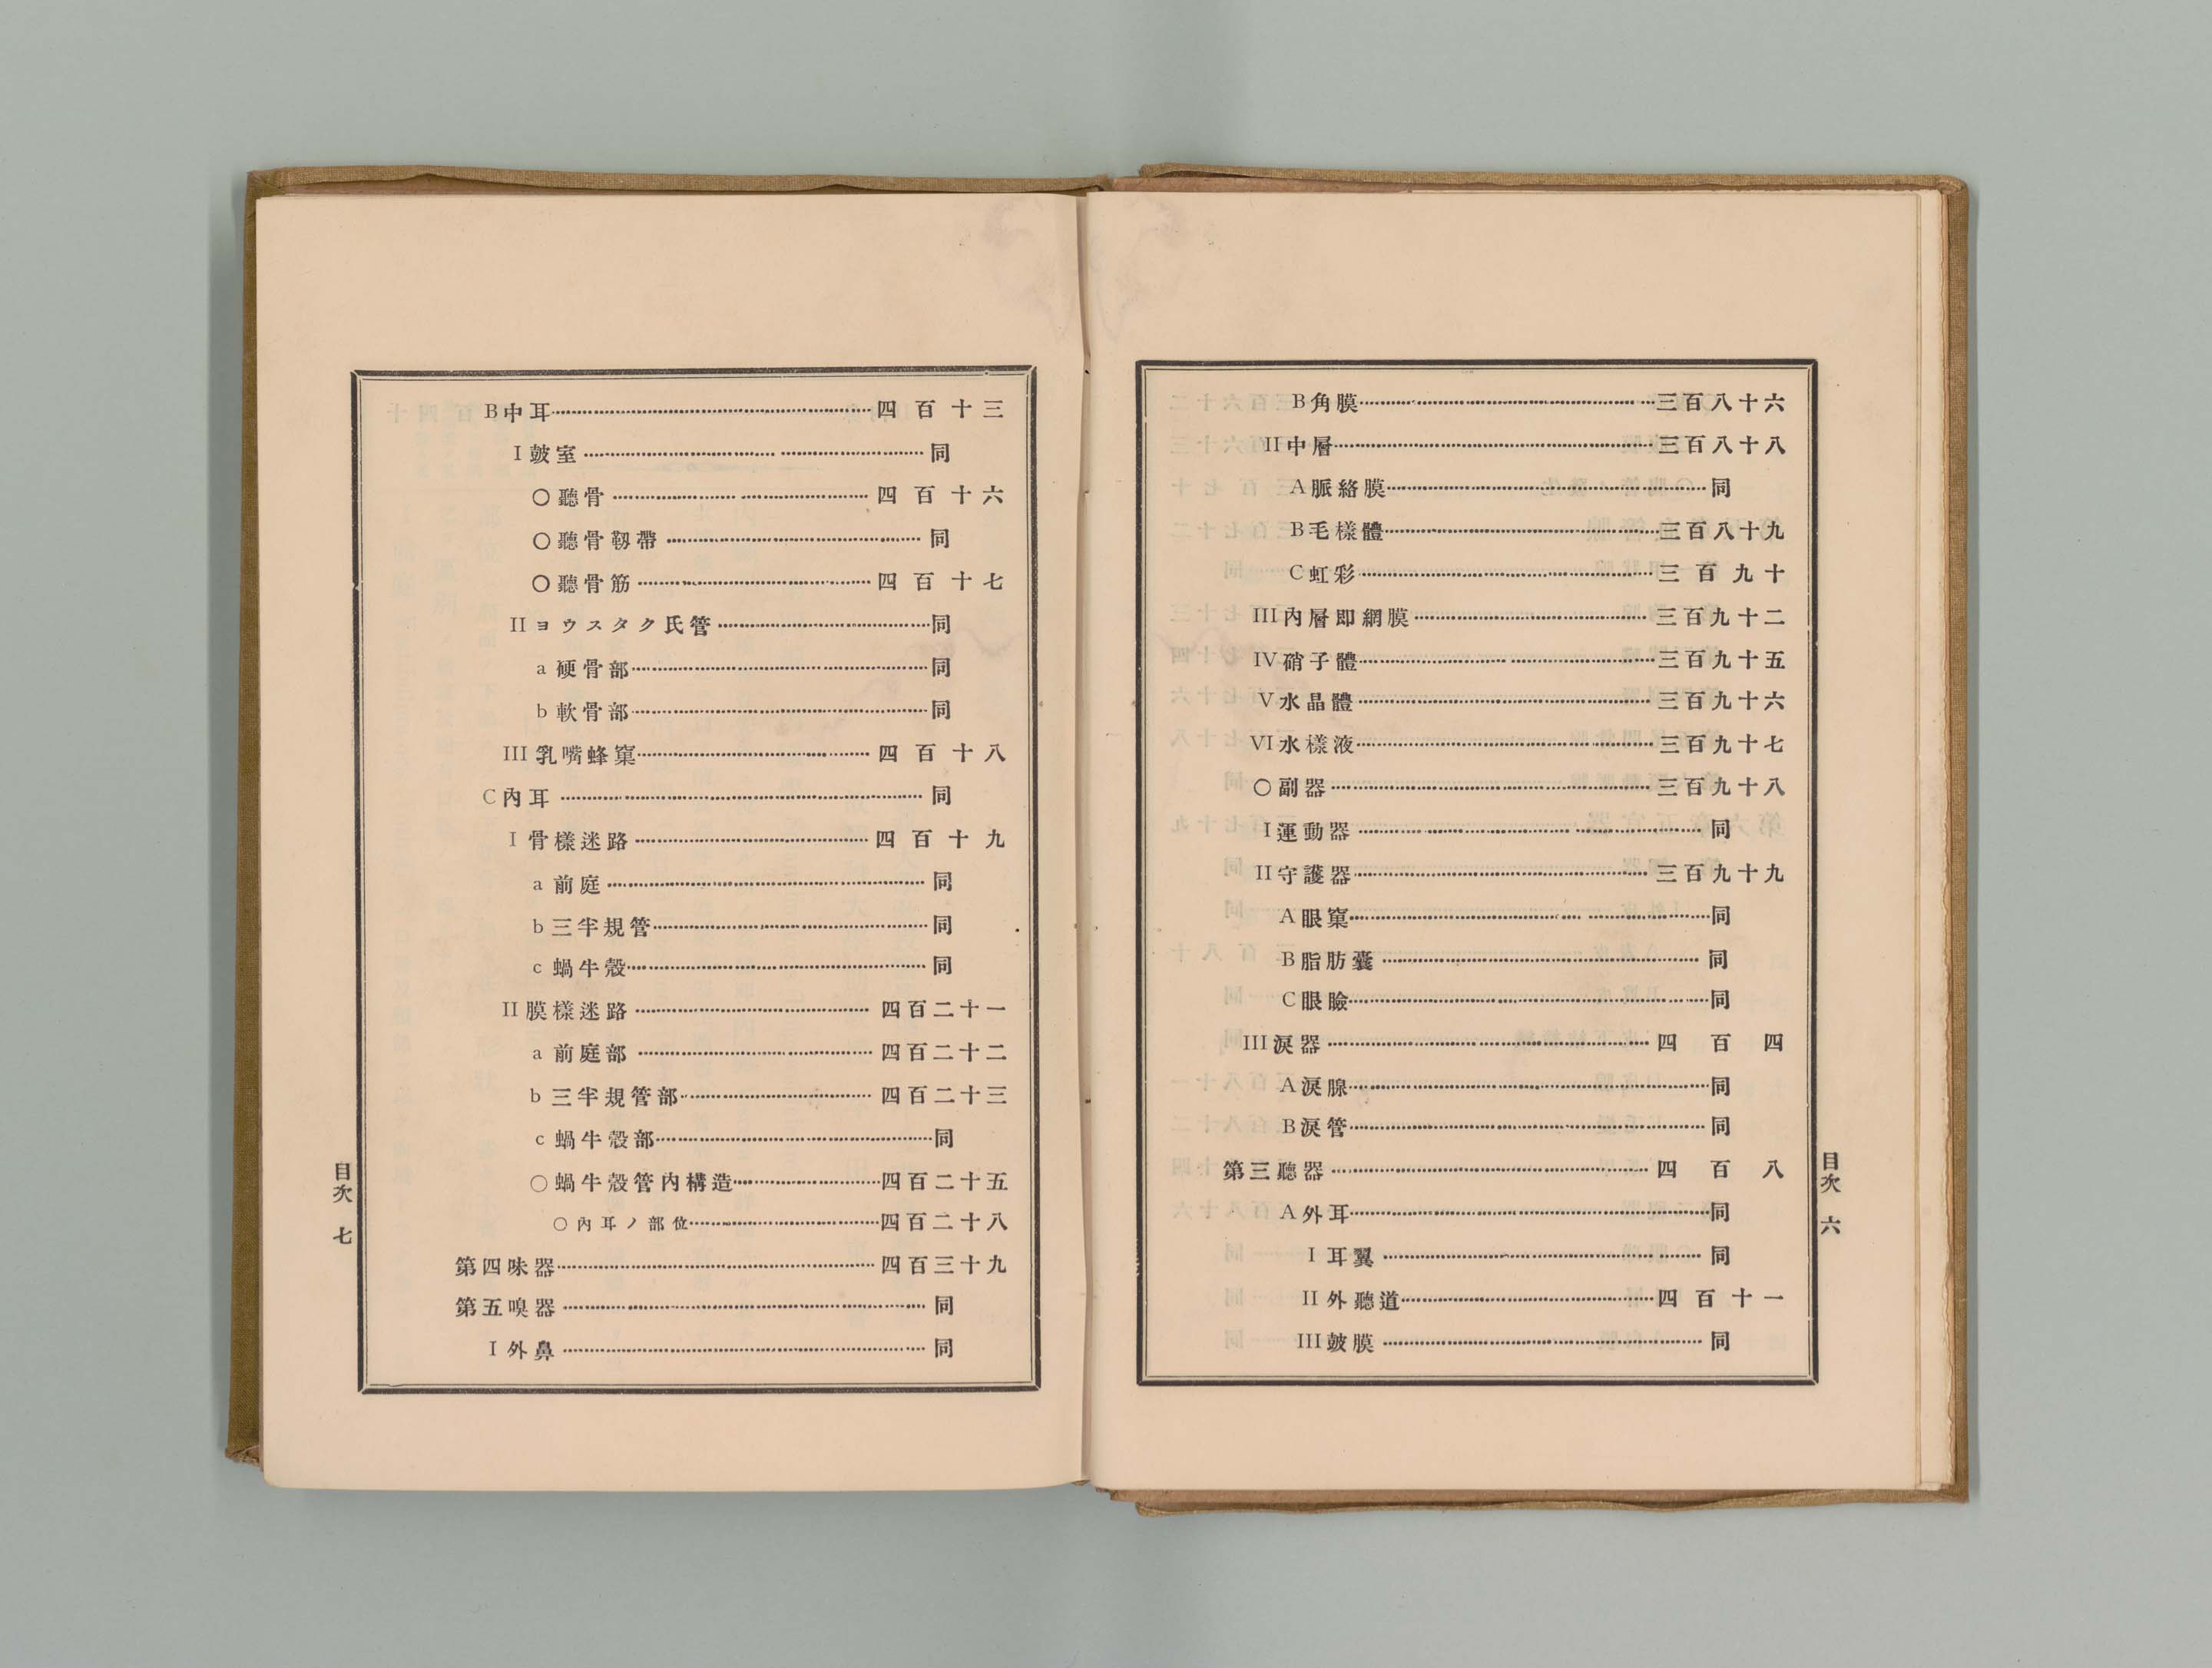 B角膜……三百八十六
II中層……三百八十八
A脈絡膜……同
B毛樣體……三百八十九
C虹彩……三百九十
III內層即網膜……三百九十二
IV硝子體……三百九十五
V水晶體……三百九十六
VI水樣液……三百九十七
〇副器……三百九十八
I運動器……同
II守護器……三百九十九
A眼窠……同
B脂肪囊……同
C眼瞼……同
III淚器……四百四
A淚腺……同
B淚管……同
第三聽器……四百八
A外耳……同
I耳翼……同
II外聽道……四百十一
III皷膜……同
目次 六
B中耳……四百十三
I皷室……同
〇聽骨……四百十六
〇聽骨靱帶……同
〇聽骨筋……四百十七
IIヨウスタク氏管……同
a硬骨部……同
b軟骨部……同
III乳嘴蜂窠……四百十八
C內耳……同
I骨樣迷路……四百十九
a前庭……同
b三半規管……同
c蝸牛殼……同
II膜樣迷路……四百二十一
a前庭部……四百二十二
b三半規管部……四百二十三
c蝸牛殼部……同
〇蝸牛殼管內構造……四百二十五
〇內耳ノ部位……四百二十八
第四味器……四百三十九
第五嗅器……同
I外鼻……同
目次 七